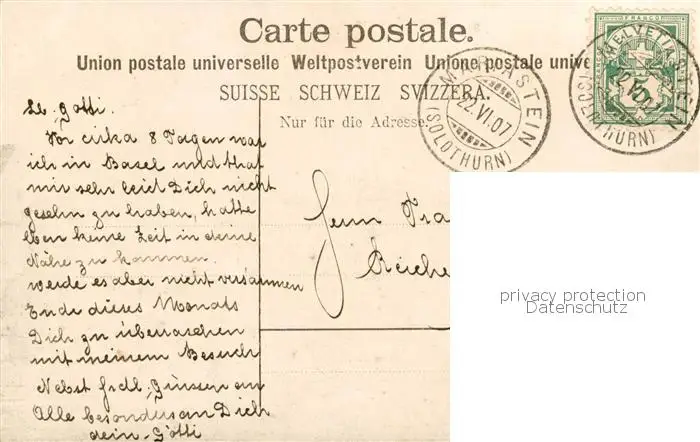 Carte postale.
Union postale universelle Weltpostverein Unione postale unive
SUISSE SCHWEIZ SVIZZERA.
Nur für die Adresse
MARIASTEIN
22.VI.07
(SOLOTHURN)
FRANCO
HELVETIA
5
(SOLOTHURN)
Lb. Götti.
Vor cirka 8 Tagen war
ich in Basel und that
mir sehr leid Dich nicht
gesehn zu haben, hatte
eben keine Zeit in deine
Nähe zu kommen.
werde es aber nicht versäumen
Ende dieses Monats
Dich zu überraschen
mit meinem Besuch
Nebst frdl. Grüssen an
Alle besonders an Dich
dein Götti
Herrn
Reiche
privacy protection
Datenschutz